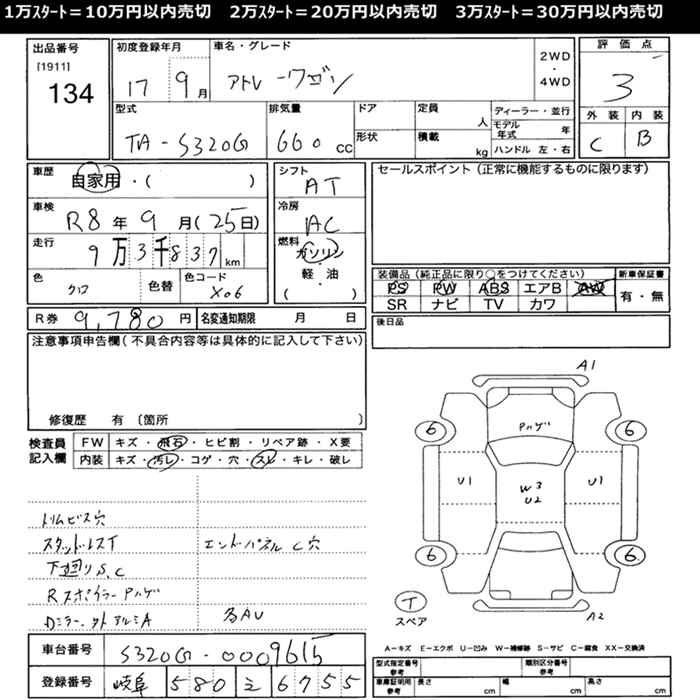 1万ｽﾀｰﾄ＝10万円以内売切　2万ｽﾀｰﾄ＝20万円以内売切　3万ｽﾀｰﾄ＝30万円以内売切
出品番号
[1911]
134
初度登録年月
17 9月
車名・グレード
アトレーワゴン
2WD
・
4WD
評価点
3
外装 内装
C B
型式
TA-S320G
排気量
660 cc
ドア
形状
定員
人
積載
kg
ディーラー・並行
モデル年式 年
ハンドル 左・右
車歴
自家用・( )
車検
R8年9月(25日)
走行
9万3千837km
色
クロ
色替
色コード
X06
シフト
AT
冷房
AC
燃料
ガソリン
軽・油
( )
セールスポイント(正常に機能するものに限ります)
装備品(純正品に限り○をつけてください)
PS PW ABS エアB AW
SR ナビ TV カワ
新車保証書
有・無
R券 9,780円
名変通知期限 月 日
後日品
注意事項申告欄(不具合内容等は具体的に記入して下さい)
修復歴 有 〔箇所 〕
検査員記入欄
FW キズ・飛石・ヒビ割・リペア跡・X要
内装 キズ・汚レ・コゲ・穴・スレ・キレ・破レ
トリムビス穴
スタッドレスT
エンドパネルC穴
下廻りS、C
Rスポイラー Pハゲ
Dミラー、外アルミA
各AU
A1
Pハゲ
6 6
U1
W3
U2
U1
6 6
T
スペア
A2
A－キズ E－エクボ U－凹み W－補修跡 S－サビ C－腐食 XX－交換済
車台番号 S320G-0009615
登録番号 岐阜 580 え 6755
型式指定番号
参考
類別区分番号
参考
車庫証明用
参考
長さ cm
幅 cm
高さ cm